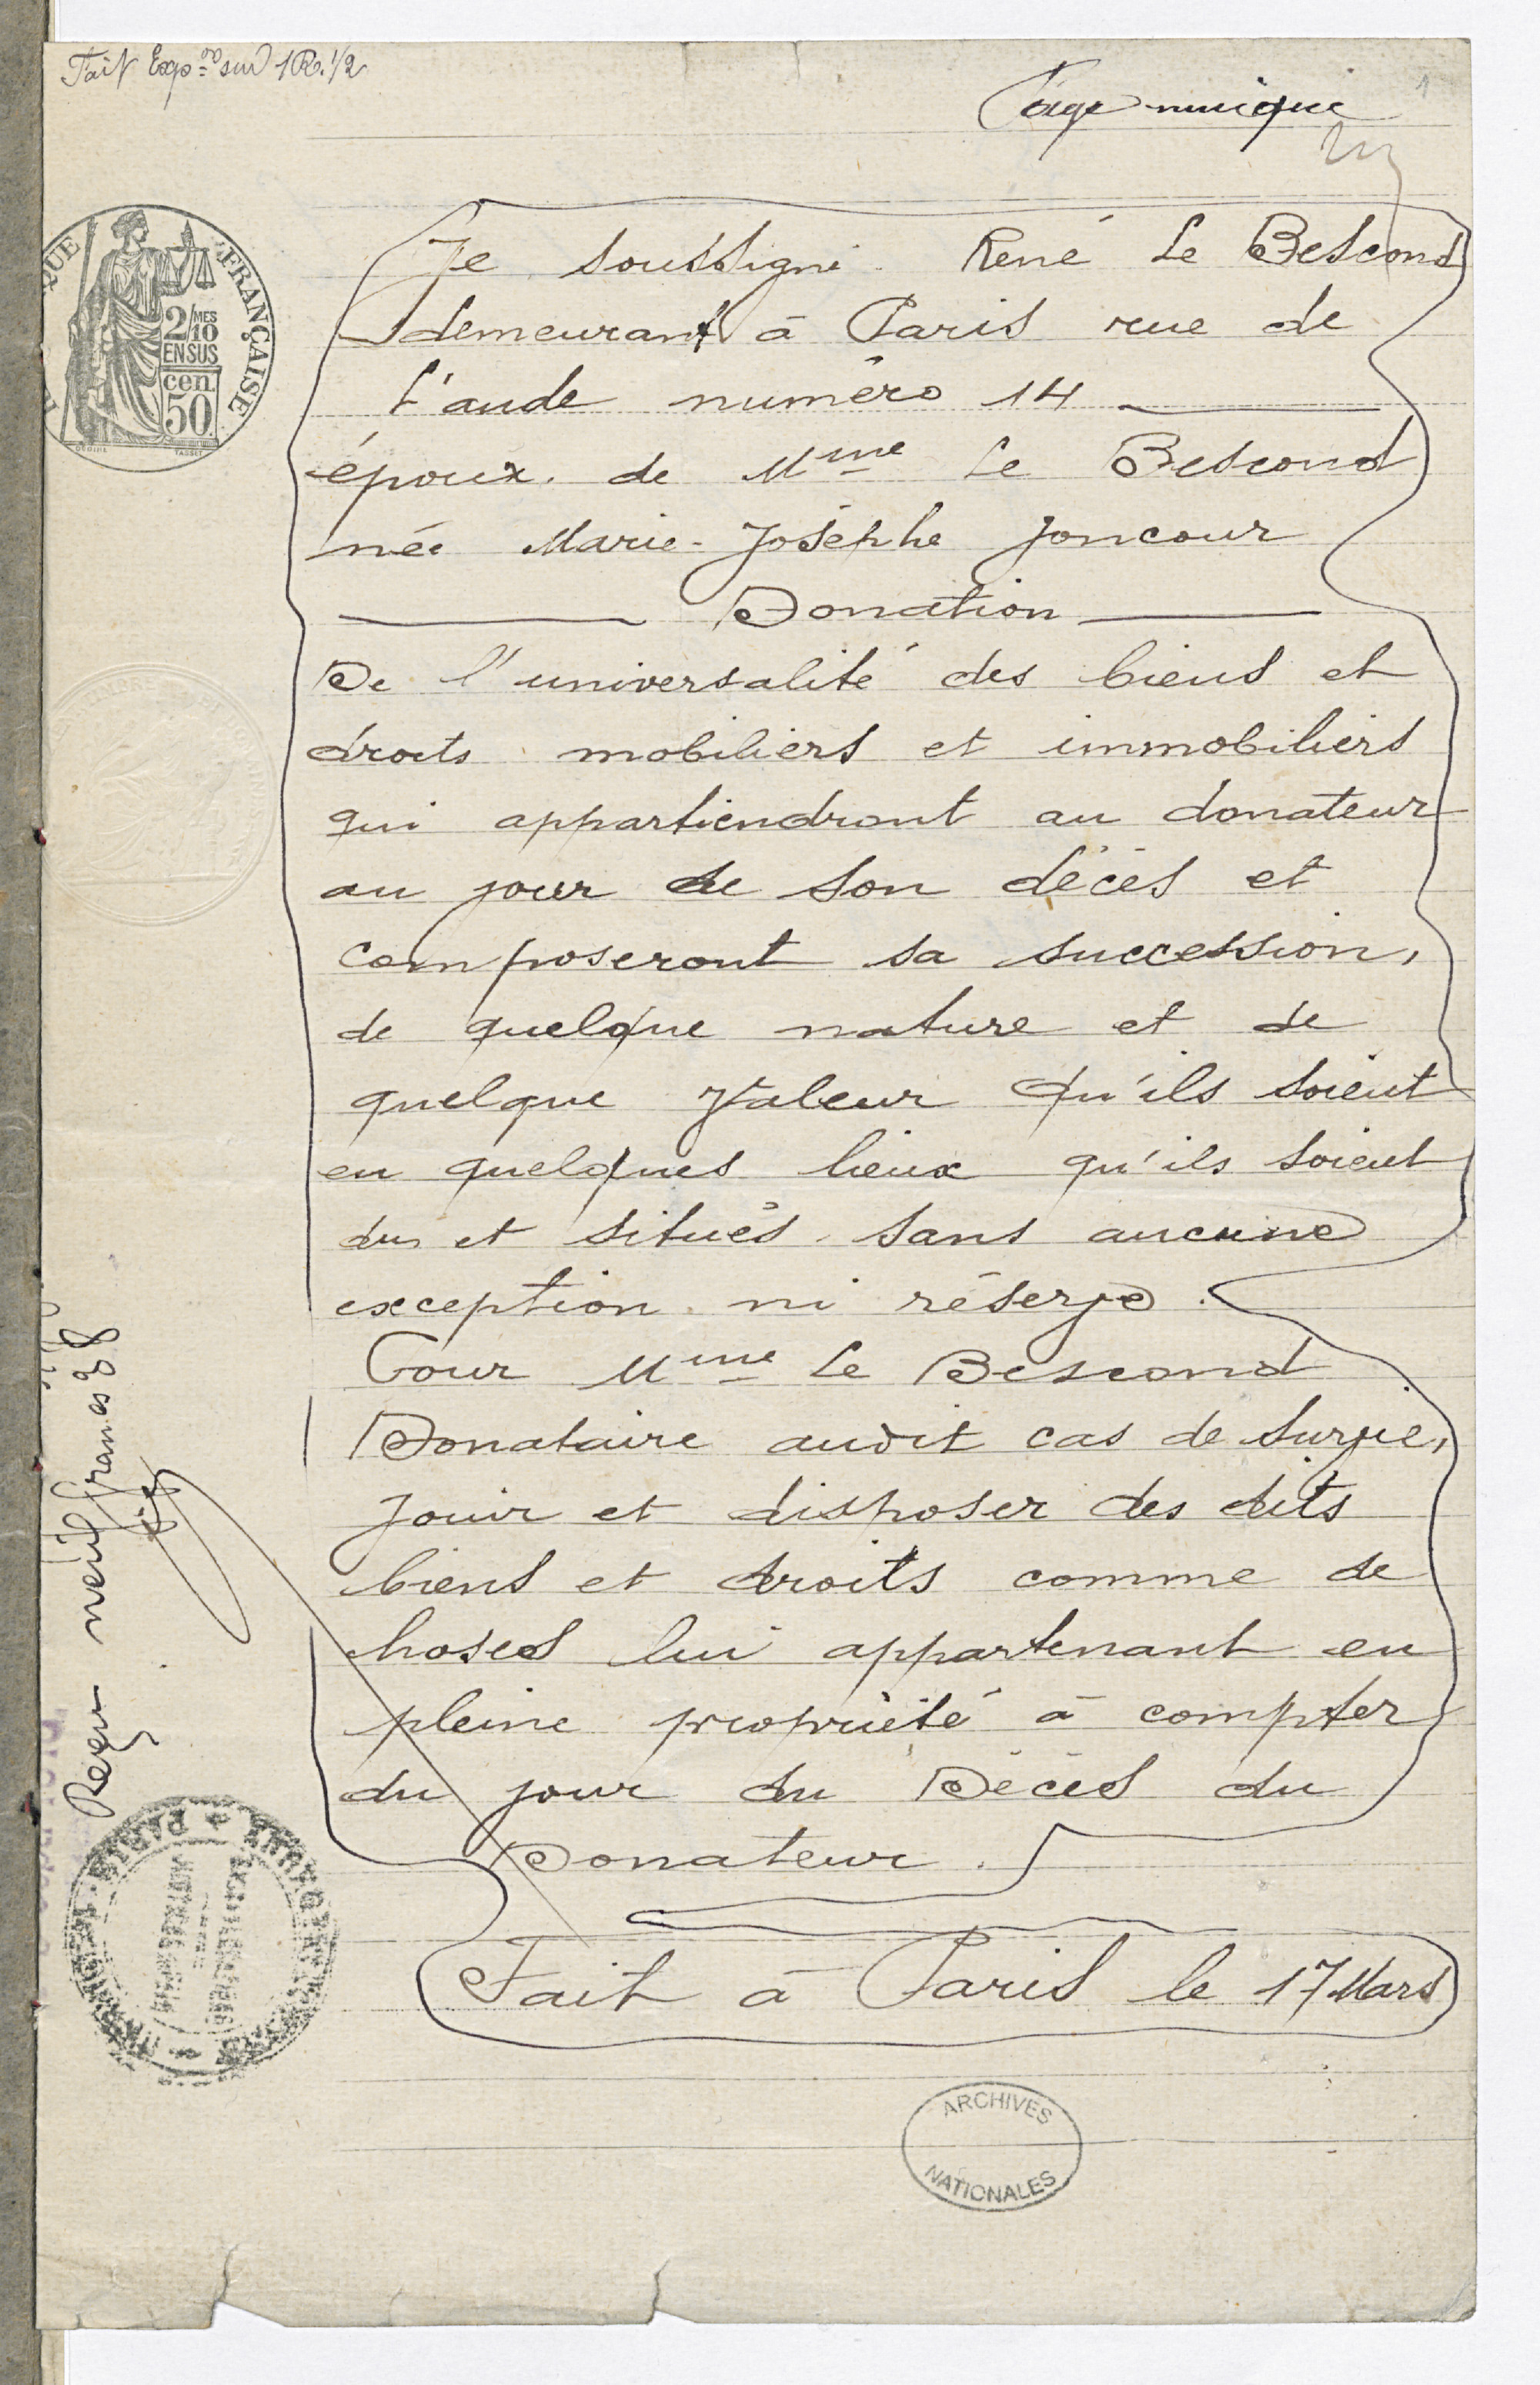 Fait Exp.on sur 1R. 1/2
Page unique
1
QUE FRANÇAISE
2/MES
10
EN SUS
cen.
50
Je soussigné René Le Bescond
demeurant à Paris rue de
l'aude numéro 14
époux de Mme Le Bescond
née Marie-Josèphe Joncour
Donation
De l'universalité des biens et
droits mobiliers et immobiliers
qui appartiendront au donateur
au jour de son décès et
composeront sa succession,
de quelque nature et de
quelque valeur qu'ils soient
en quelques lieux qu'ils soient
dus et situés sans aucune
exception ni réserve.
Pour Mme Le Bescond
Donataire audit cas de survie,
jouir et disposer des dits
biens et droits comme de
choses lui appartenant en
pleine propriété à compter
du jour du Décès du
Donateur.
Fait à Paris le 17 Mars
Reçu neuf francs 38
PARIS
ARCHIVES
NATIONALES